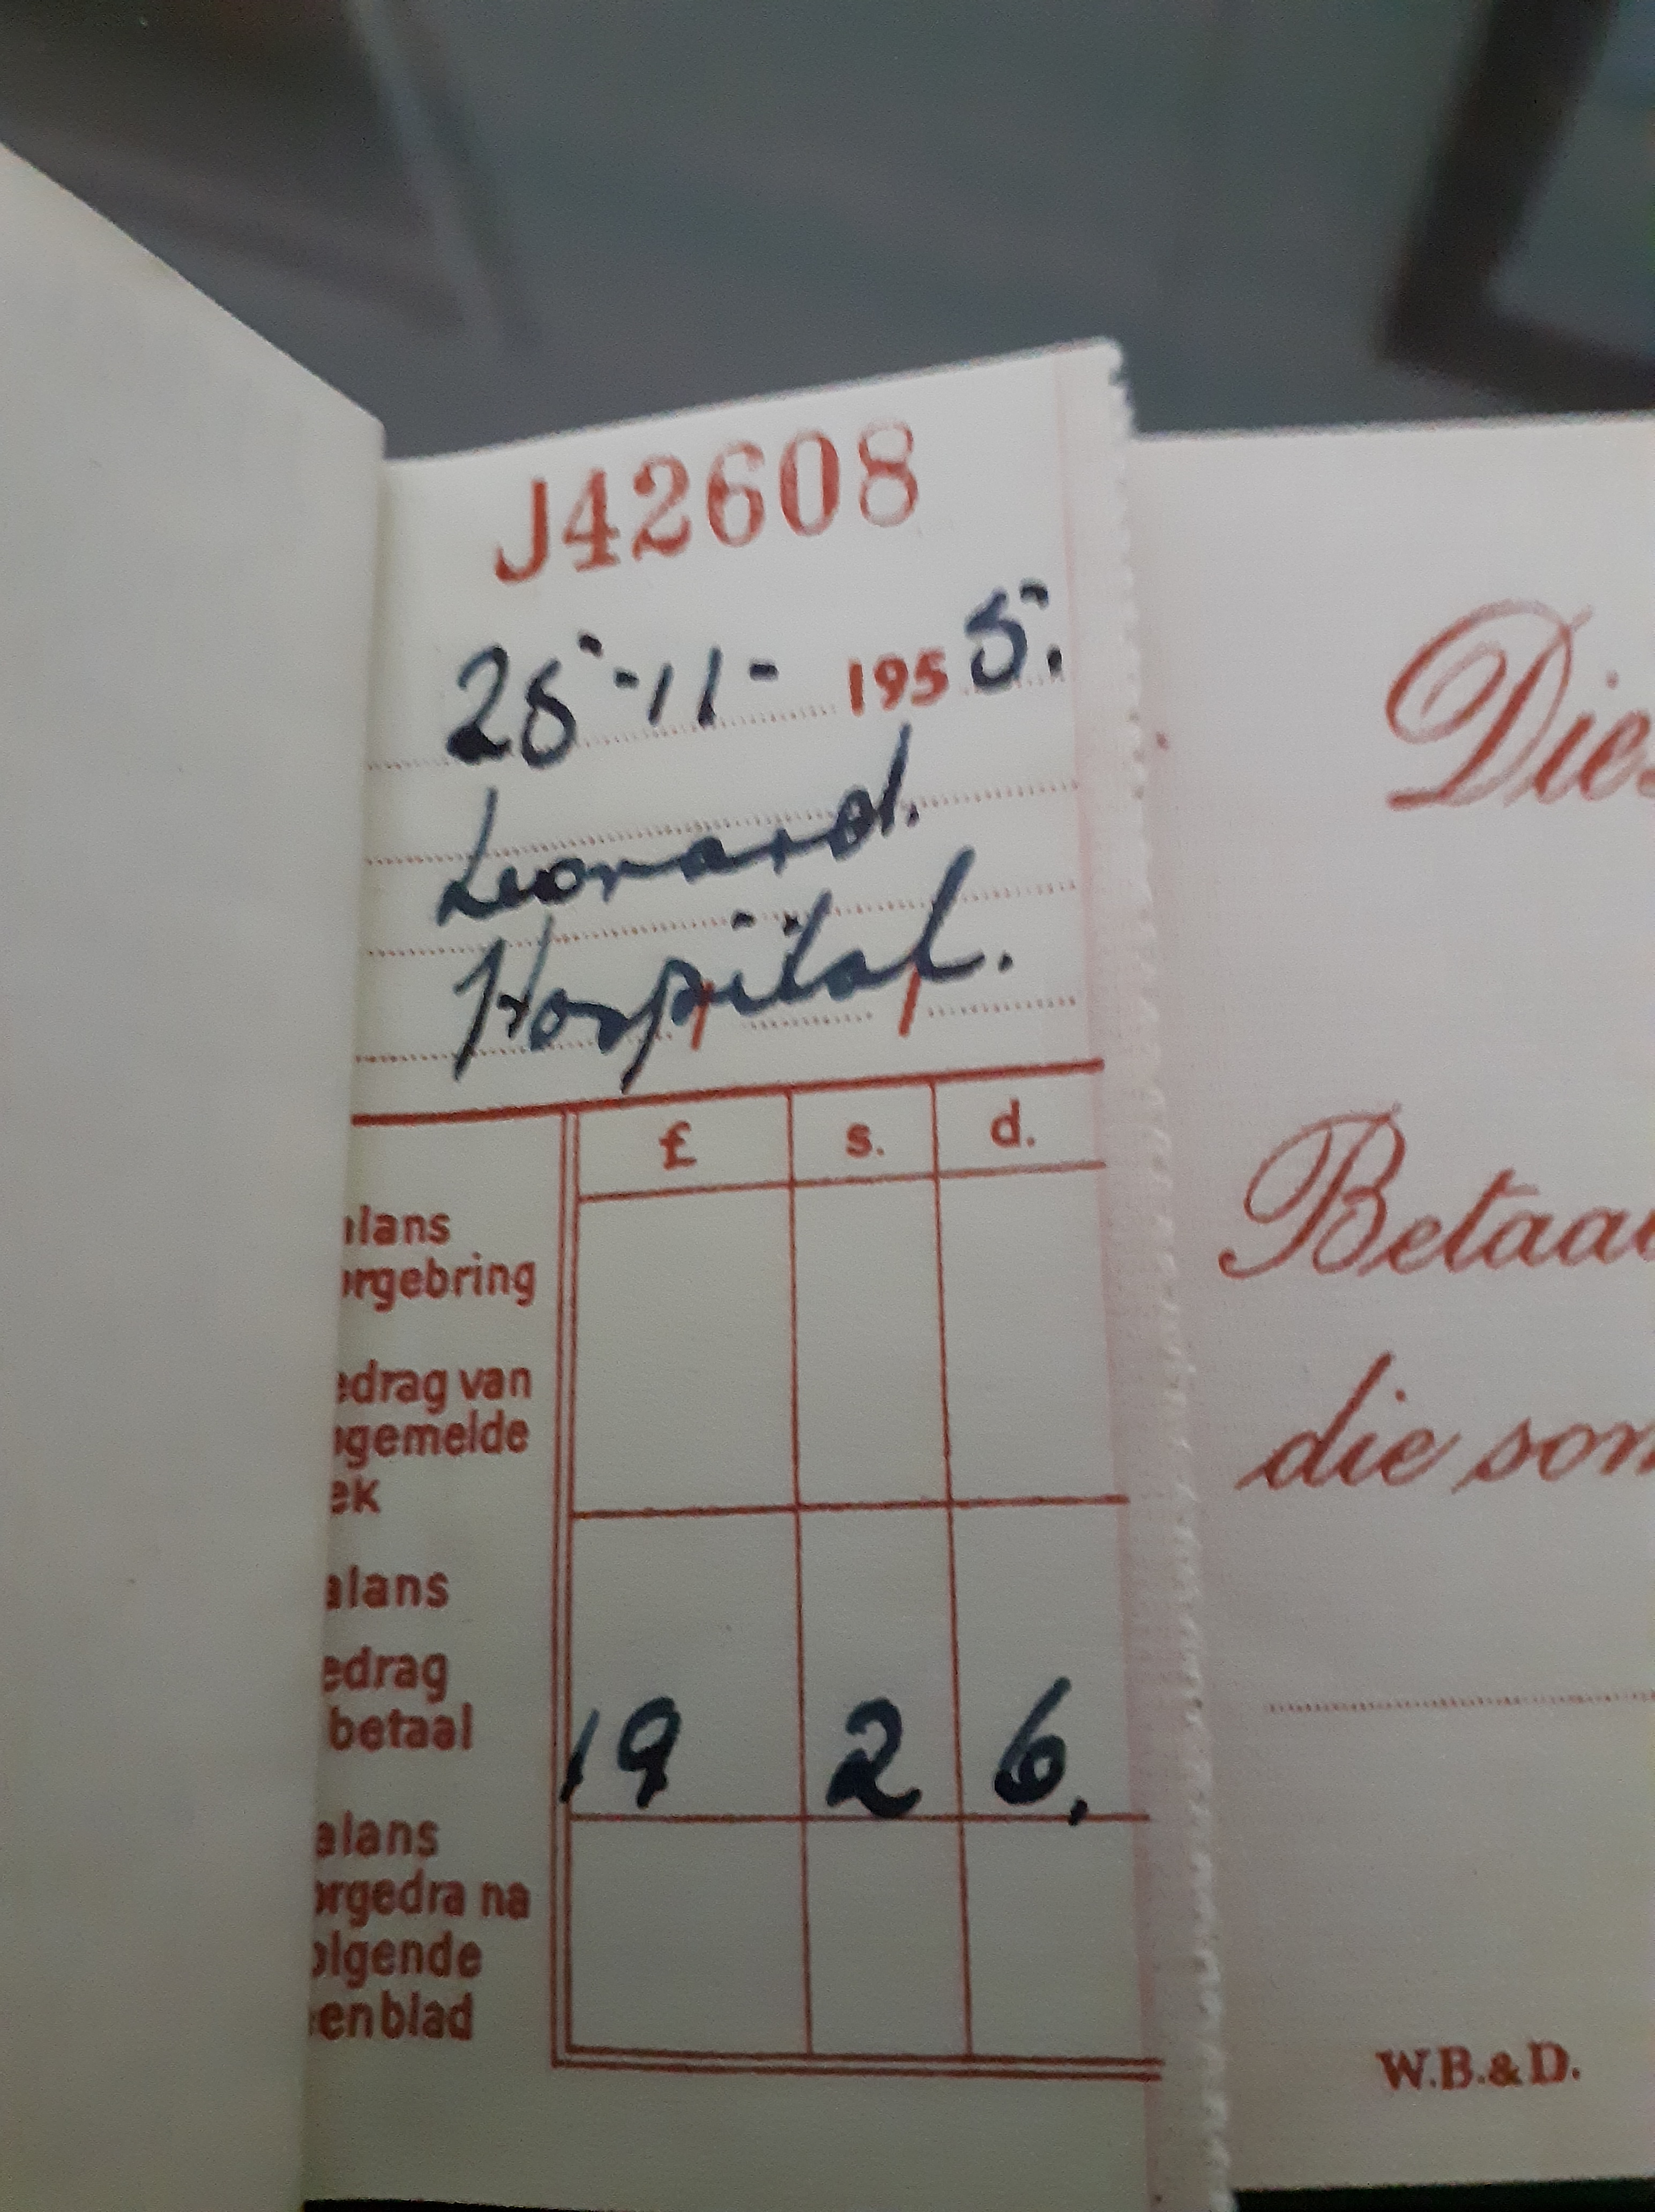 J42608
25-11- 1955.
Leonard.
Hospital.
£ s. d.
alans
orgebring
edrag van
ogemelde
ek
alans
edrag
betaal 19 2 6.
alans
orgedra na
olgende
enblad
Die
Betaal
die som
W.B.&D.